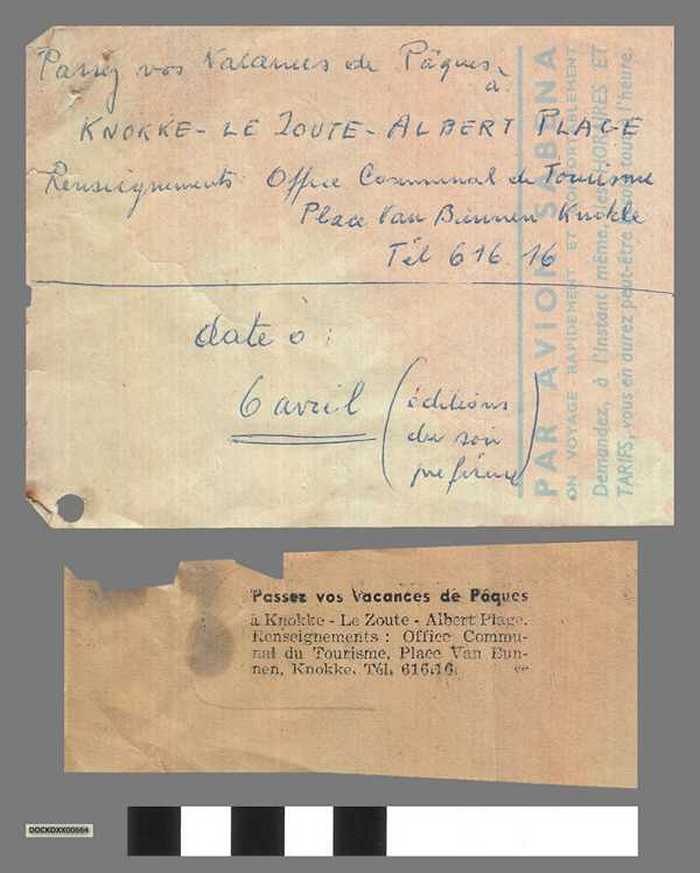 Passez vos Vacances de Pâques
à
KNOKKE - LE ZOUTE - ALBERT PLAGE
Renseignements Office Communal de Tourisme
Place Van Bunnen Knokke
Tél 616.16
date à :
6 avril (éditions
du soir
préférence)
PAR AVION SABENA
ON VOYAGE RAPIDEMENT ET CONFORTABLEMENT
Demandez, à l'instant même, les HORAIRES ET
TARIFS, vous en aurez peut-être besoin tout à l'heure.
Passez vos Vacances de Pâques
à Knokke - Le Zoute - Albert Plage.
Renseignements : Office Commu-
nal du Tourisme, Place Van Bun-
nen, Knokke. Tél. 616.16.
DOCKDXX00664